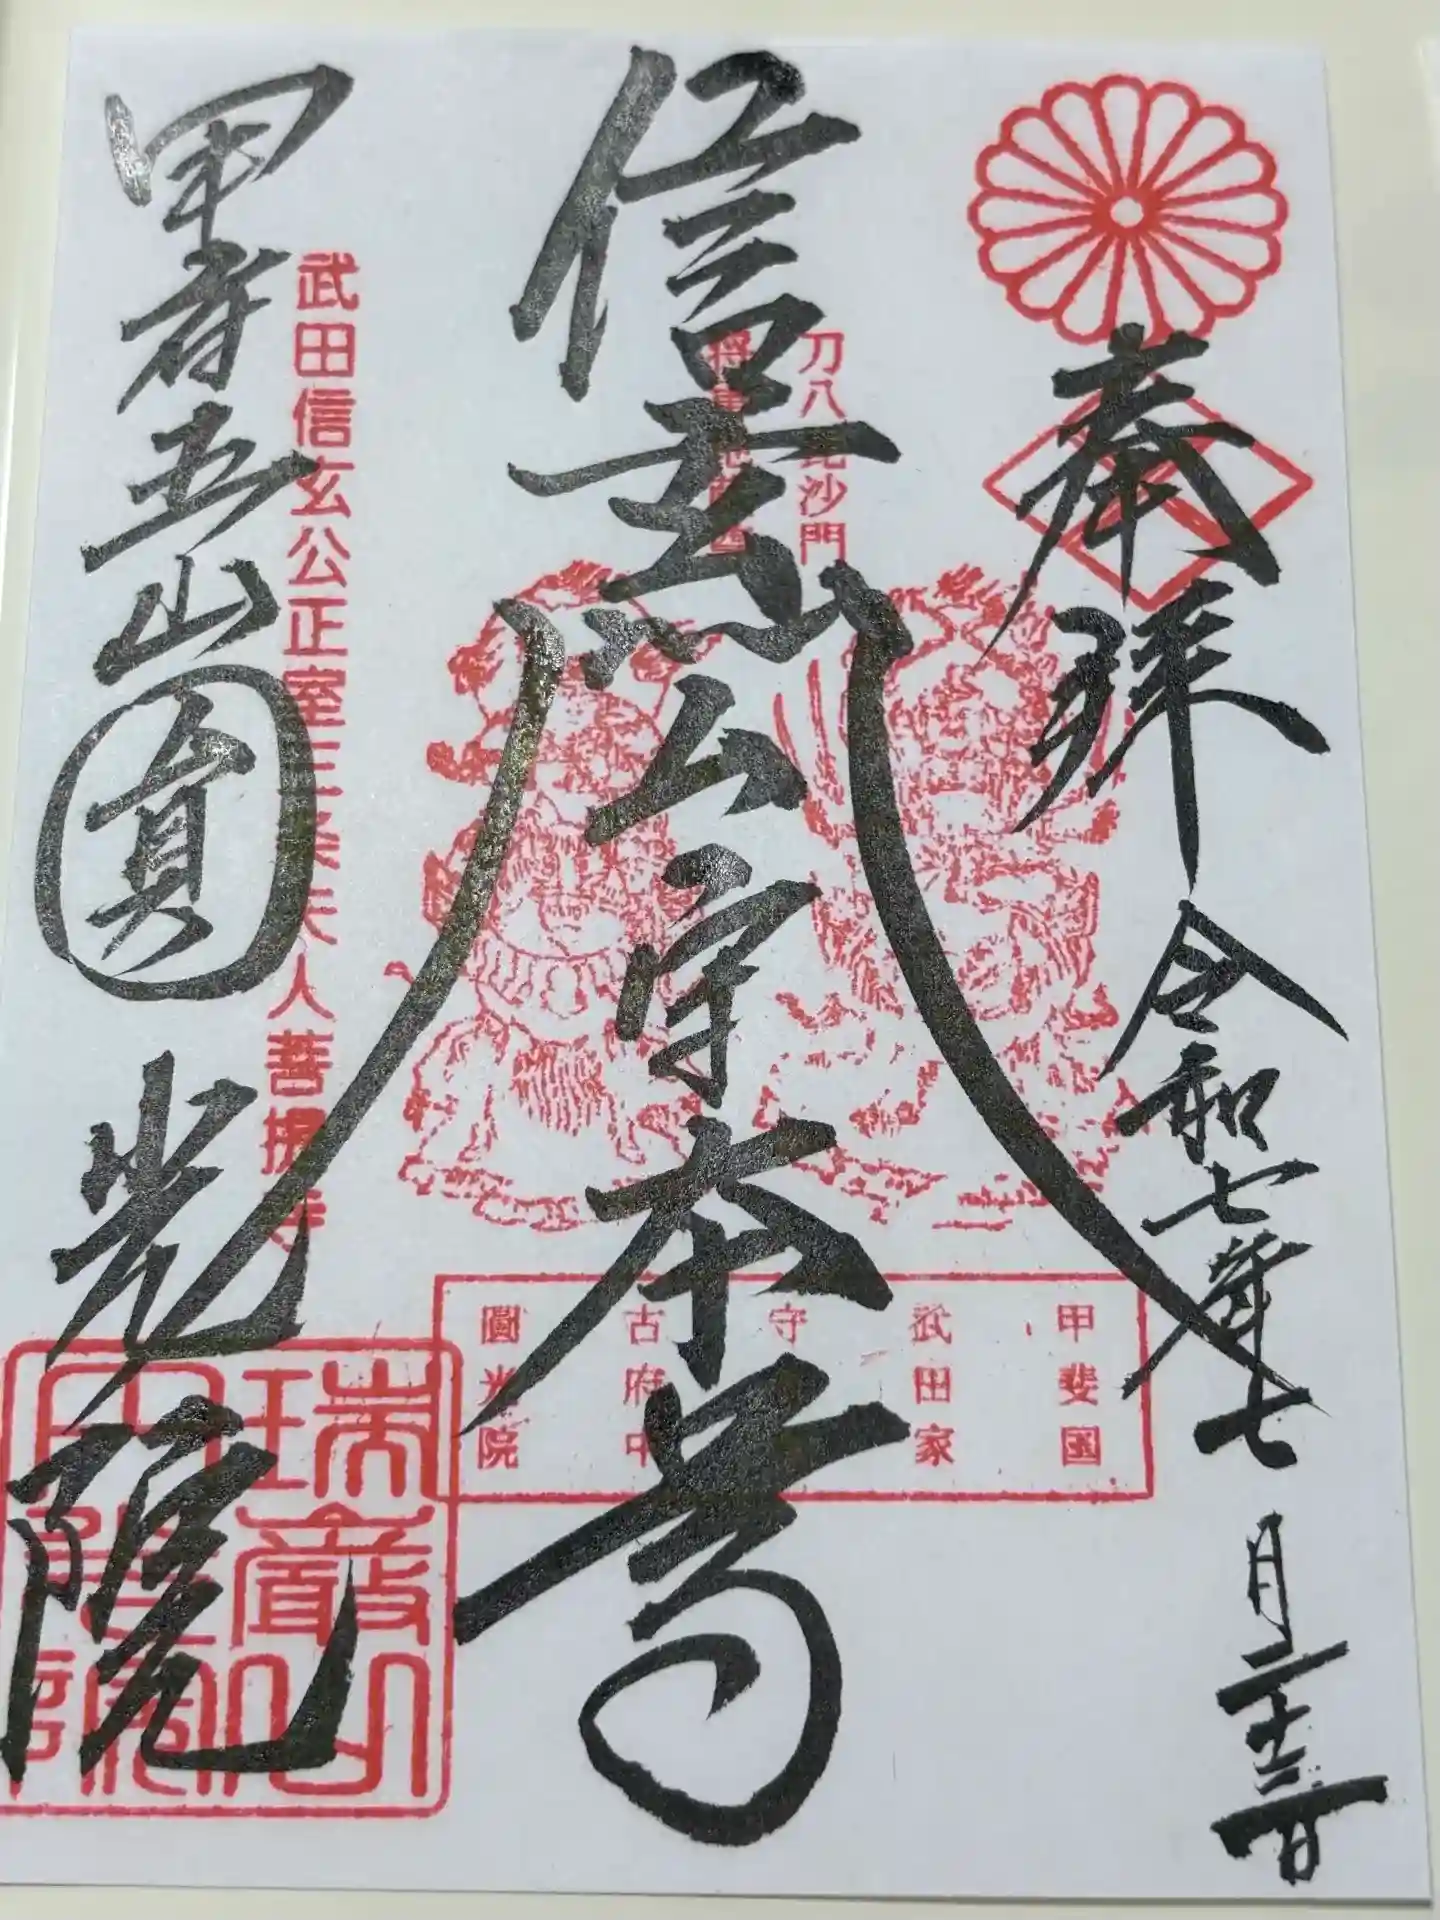 奉拝
令和七年七月二十三日
刀八毘沙門
将軍地蔵尊
信玄公守本尊
甲斐国
武田家
守
古府中
圓光院
武田信玄公正室三条夫人菩提寺
甲府五山
圓光院
瑞巌山
圓光院